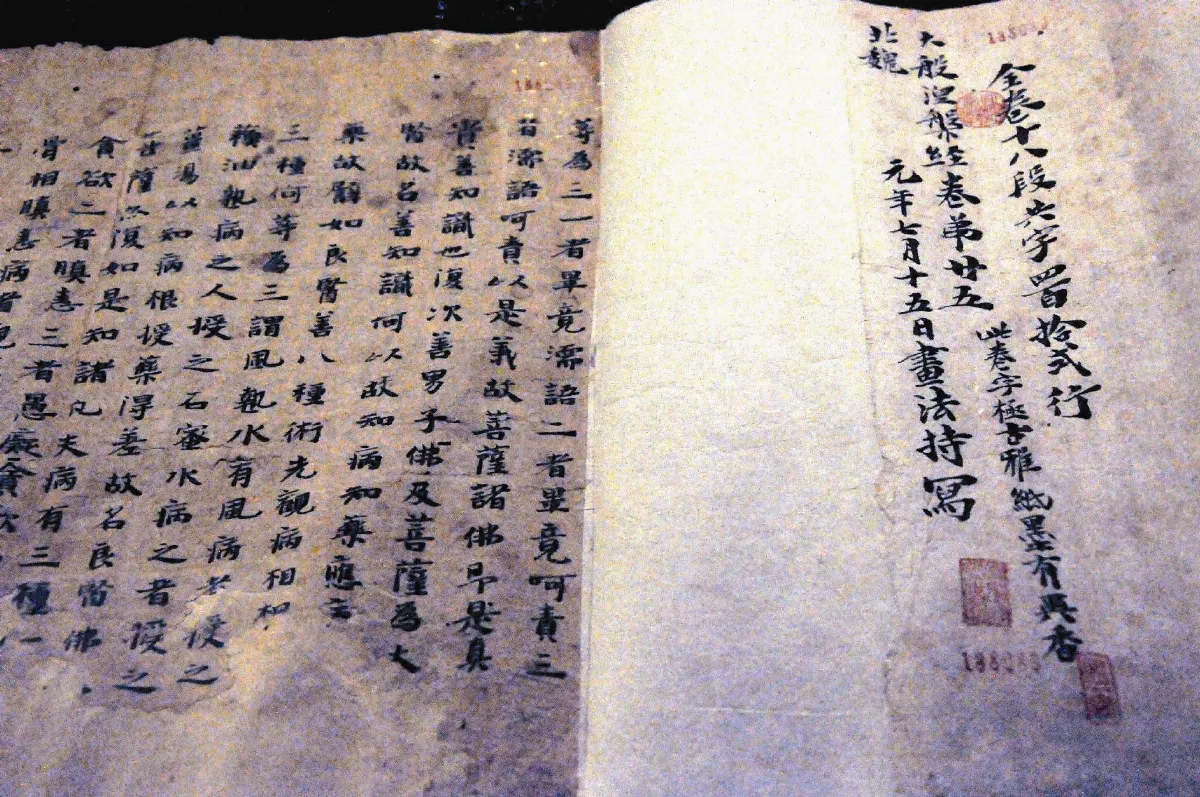 全卷十八段共字四百拾弍行
此卷字極古雅紙墨有異香
大般涅槃經卷第廿五
北魏
元年七月十五日畫法持寫
等為三一者畢竟濡語二者畢竟呵責三
者濡語呵責以是義故菩薩諸佛即是真
實善知識也復次善男子佛及菩薩為大
醫故名善知識何以故知病知藥應
藥故譬如良醫善八種術先觀病相相
三種何等為三謂風熱水有風病者授之
油熱病之人授之石蜜水病之者授之
薑湯以知病根授藥得差故名良醫佛
菩薩亦復如是知諸凡夫病有三種一
貪欲二者瞋恚三者愚癡貪欲
骨相瞋恚病者觀